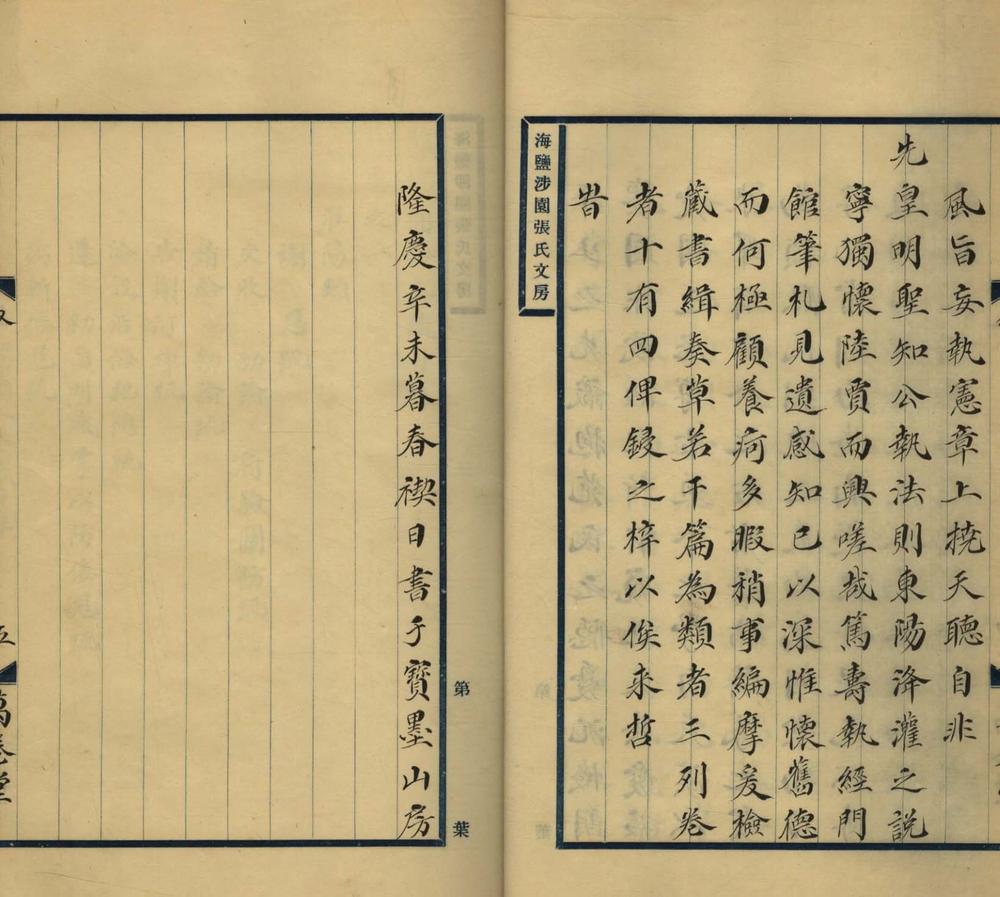 風旨妄執憲章上撓天聽自非
先皇明聖知公執法則東陽泽灌之説
寧獨懷陸賈而興嗟哉篤壽執經門
館筆札見遺感知已以深惟懷舊德
而何極顧養疴多暇稍事編摩爰檢
藏書緝奏草若干篇為類者三列卷
者十有四俾鋟之梓以俟来哲
昔
海鹽涉園張氏文房
隆慶辛未暮春禊日書于寶墨山房
第
葉
五
萬卷堂